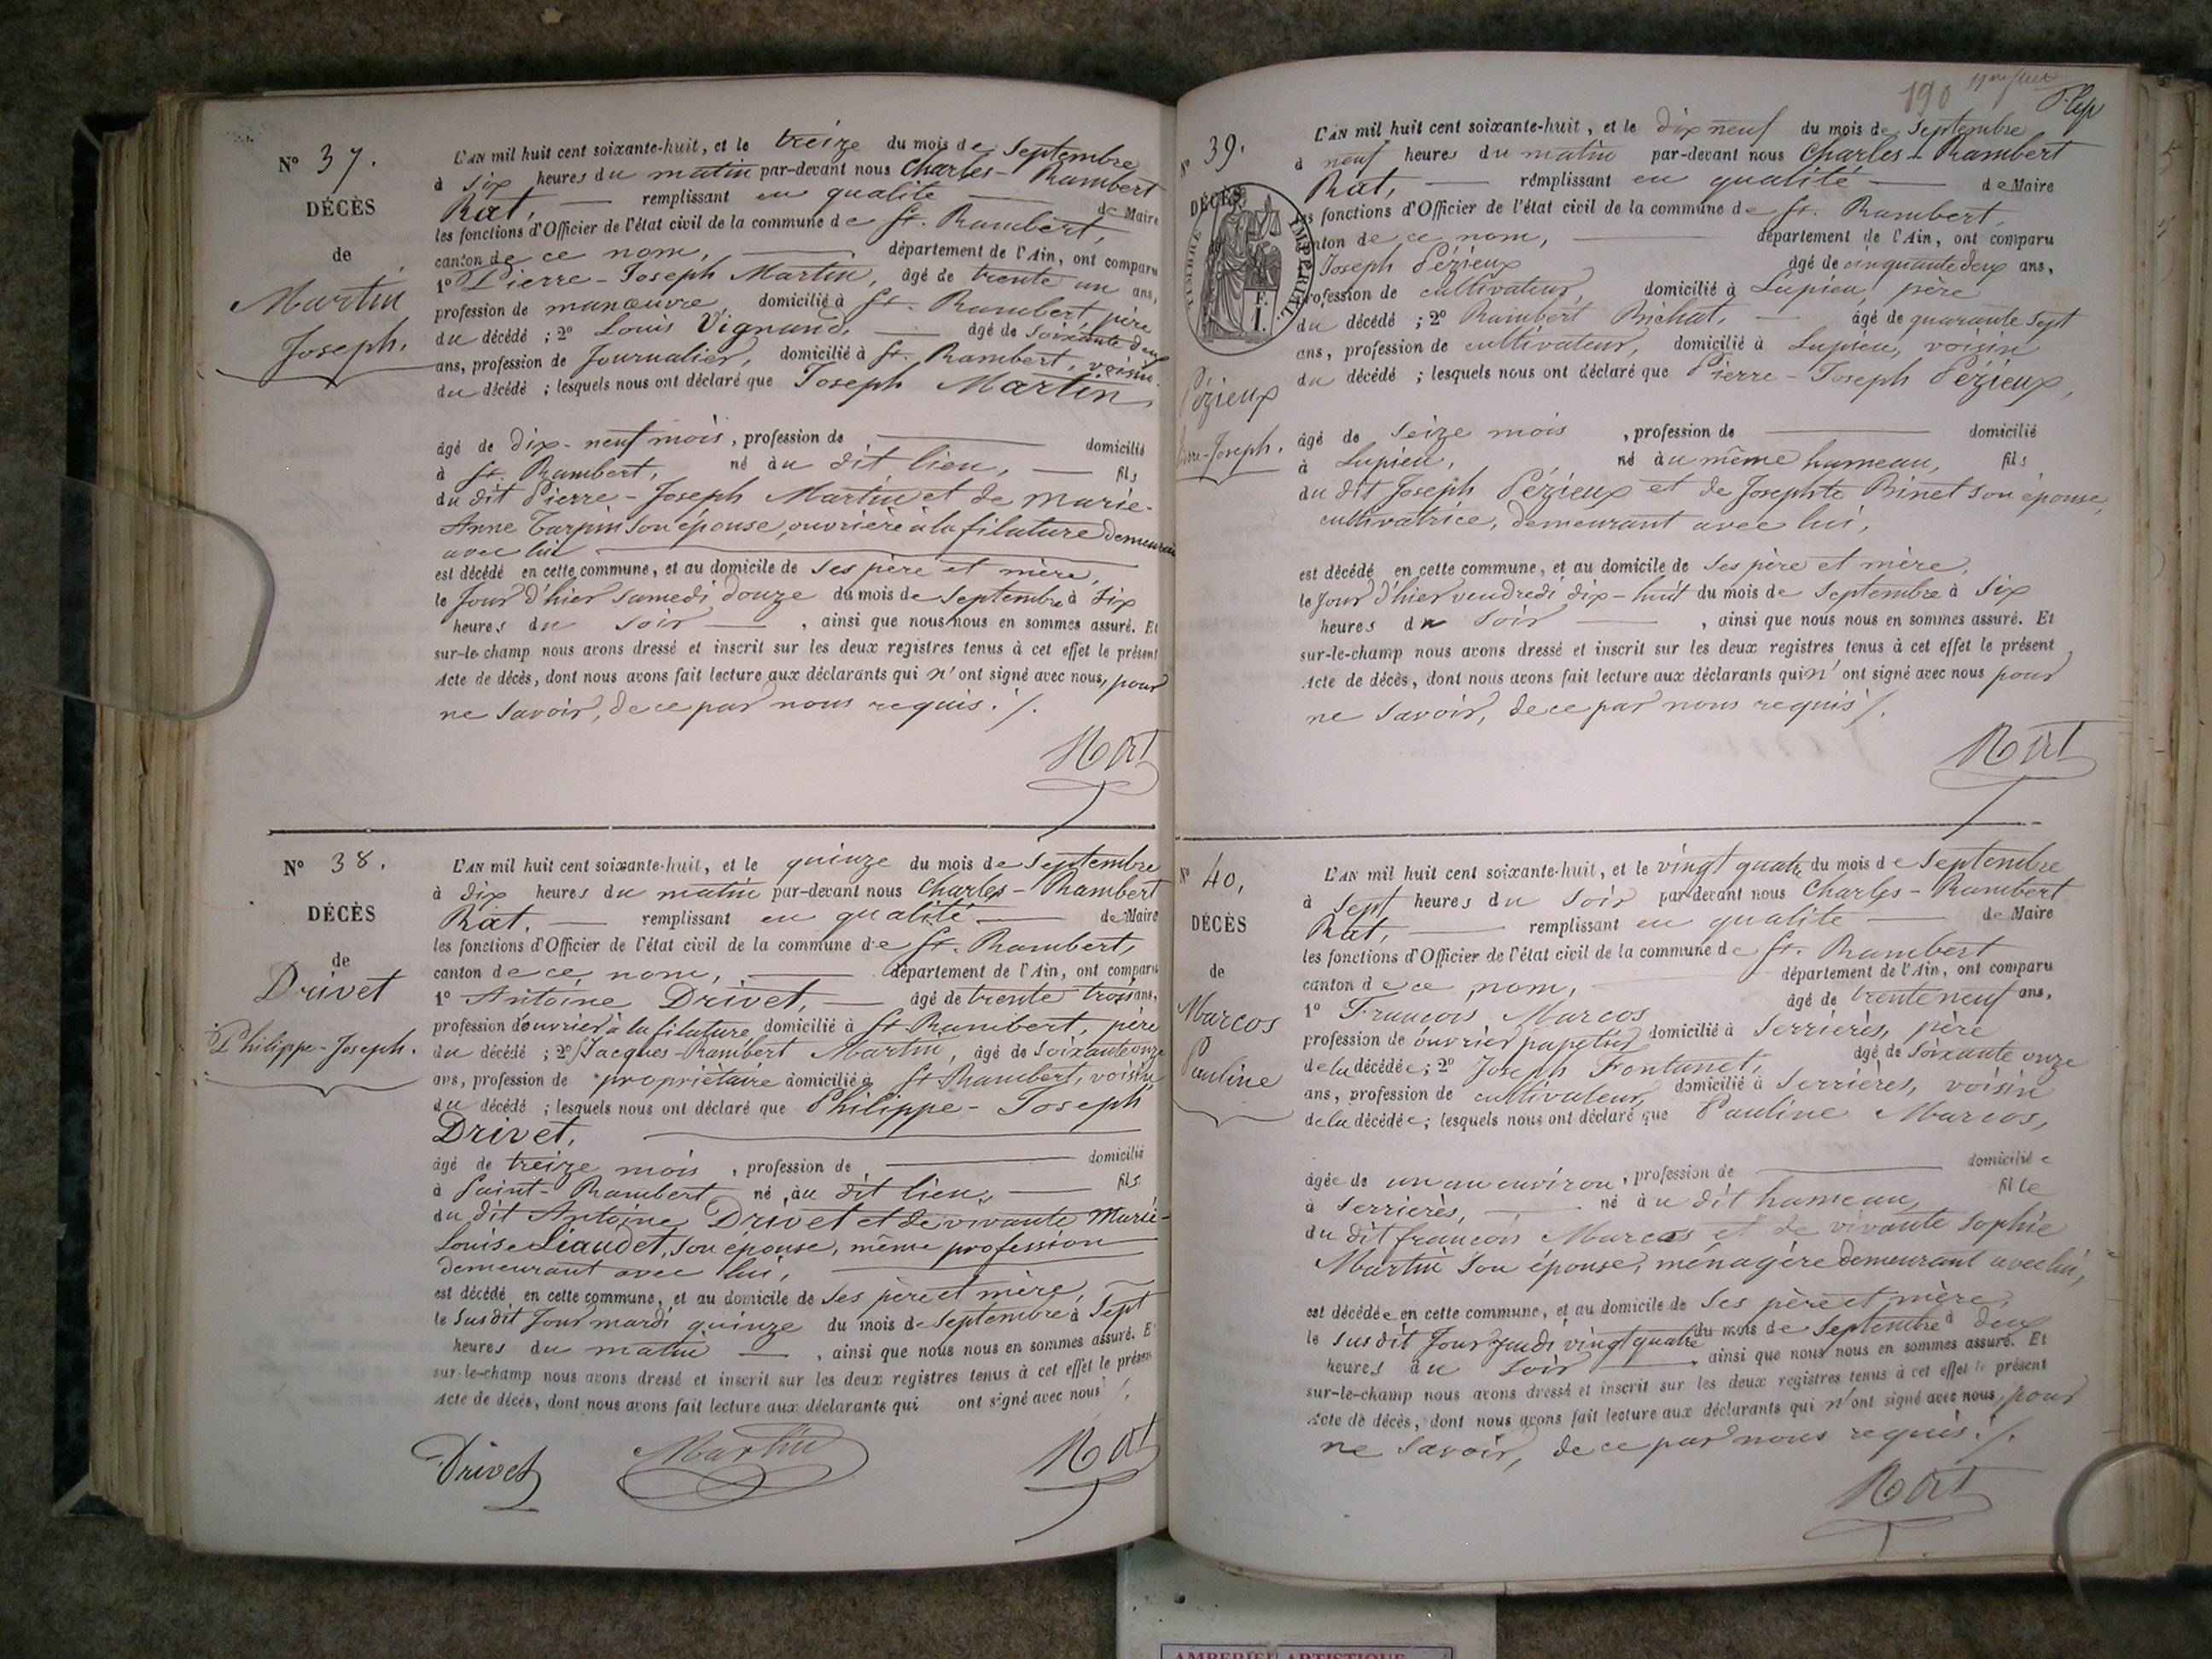 N° 37.
DÉCÈS
de
Martin
Joseph.
L'AN mil huit cent soixante-huit, et le treize du mois de Septembre
à six heures du matin par-devant nous Charles-Rambert
Rat, remplissant en qualité de Maire
les fonctions d'Officier de l'état civil de la commune de St. Rambert,
canton de ce nom, département de l'Ain, ont comparu
1° Pierre-Joseph Martin, âgé de trente un ans,
profession de manœuvre domicilié à St. Rambert, père
du décédé ; 2° Louis Vignand, âgé de soixante deux
ans, profession de Journalier, domicilié à St. Rambert, voisin
du décédé ; lesquels nous ont déclaré que Joseph Martin,
âgé de dix-neuf mois, profession de domicilié
à St. Rambert, né au dit lieu, fils
du dit Pierre-Joseph Martin et de Marie-
Anne Tarpin son épouse, ouvrière à la filature demeurant
avec lui
est décédé en cette commune, et au domicile de ses père et mère,
le Jour d'hier samedi douze du mois de Septembre à six
heures du soir, ainsi que nous nous en sommes assuré. Et
sur-le-champ nous avons dressé et inscrit sur les deux registres tenus à cet effet le présent
Acte de décès, dont nous avons fait lecture aux déclarants qui n'ont signé avec nous, pour
ne savoir, de ce par nous requis./.
Rat
N° 38.
DÉCÈS
de
Drivet
Philippe-Joseph.
L'AN mil huit cent soixante-huit, et le quinze du mois de Septembre
à dix heures du matin par-devant nous Charles-Rambert
Rat, remplissant en qualité de Maire
les fonctions d'Officier de l'état civil de la commune de St. Rambert,
canton de ce nom, département de l'Ain, ont comparu
1° Antoine Drivet, âgé de trente trois ans,
profession d'ouvrier à la filature, domicilié à St Rambert, père
du décédé ; 2° Jacques-Rambert Martin, âgé de soixante onze
ans, profession de propriétaire domicilié à St Rambert, voisin
du décédé ; lesquels nous ont déclaré que Philippe-Joseph
Drivet,
âgé de treize mois, profession de domicilié
à Saint-Rambert né au dit lieu, fils
du dit Antoine Drivet et de vivante Marie-
Louise Liaudet, son épouse, même profession
demeurant avec lui,
est décédé en cette commune, et au domicile de ses père et mère,
le susdit Jour mardi quinze du mois de Septembre à sept
heures du matin, ainsi que nous nous en sommes assuré. Et
sur-le-champ nous avons dressé et inscrit sur les deux registres tenus à cet effet le présent
Acte de décès, dont nous avons fait lecture aux déclarants qui ont signé avec nous /.
Drivet Martin Rat
190
N° 39.
DÉCÈS
TIMBRE IMPERIAL
F.
1.
Pézieux
Pierre-Joseph.
L'AN mil huit cent soixante-huit, et le dix neuf du mois de Septembre
à neuf heures du matin par-devant nous Charles-Rambert
Rat, remplissant en qualité de Maire
les fonctions d'Officier de l'état civil de la commune de St. Rambert,
canton de ce nom, département de l'Ain, ont comparu
Joseph Pézieux âgé de cinquante deux ans,
profession de cultivateur, domicilié à Lupieu, père
du décédé ; 2° Rambert Bichat, âgé de quarante sept
ans, profession de cultivateur, domicilié à Lupieu, voisin
du décédé ; lesquels nous ont déclaré que Pierre-Joseph Pézieux,
âgé de seize mois, profession de domicilié
à Lupieu, né au même hameau, fils
du dit Joseph Pézieux et de Josephte Binet son épouse,
cultivatrice, demeurant avec lui,
est décédé en cette commune, et au domicile de ses père et mère,
le Jour d'hier vendredi dix-huit du mois de Septembre à six
heures du soir, ainsi que nous nous en sommes assuré. Et
sur-le-champ nous avons dressé et inscrit sur les deux registres tenus à cet effet le présent
Acte de décès, dont nous avons fait lecture aux déclarants qui n'ont signé avec nous pour
ne savoir, de ce par nous requis /.
Rat
N° 40.
DÉCÈS
de
Marcos
Pauline
L'AN mil huit cent soixante-huit, et le vingt quatre du mois de Septembre
à sept heures du soir par-devant nous Charles-Rambert
Rat, remplissant en qualité de Maire
les fonctions d'Officier de l'état civil de la commune de St. Rambert
canton de ce nom, département de l'Ain, ont comparu
1° François Marcos âgé de trente neuf ans,
profession de ouvrier papetier domicilié à Serrières, père
de la décédée ; 2° Joseph Fontanet, âgé de soixante onze
ans, profession de cultivateur, domicilié à Serrières, voisin
de la décédée ; lesquels nous ont déclaré que Pauline Marcos,
âgée de un an environ, profession de domiciliée
à Serrières, né au dit hameau, fille
du dit françois Marcos et de vivante Sophie
Martin son épouse, ménagère demeurant avec lui,
est décédée en cette commune, et au domicile de ses père et mère,
le susdit Jour Jeudi vingt quatre du mois de Septembre à deux
heures du soir, ainsi que nous nous en sommes assuré. Et
sur-le-champ nous avons dressé et inscrit sur les deux registres tenus à cet effet le présent
Acte de décès, dont nous avons fait lecture aux déclarants qui n'ont signé avec nous, pour
ne savoir, de ce par nous requis./.
Rat
AMBERIEU ARTISTIQUE